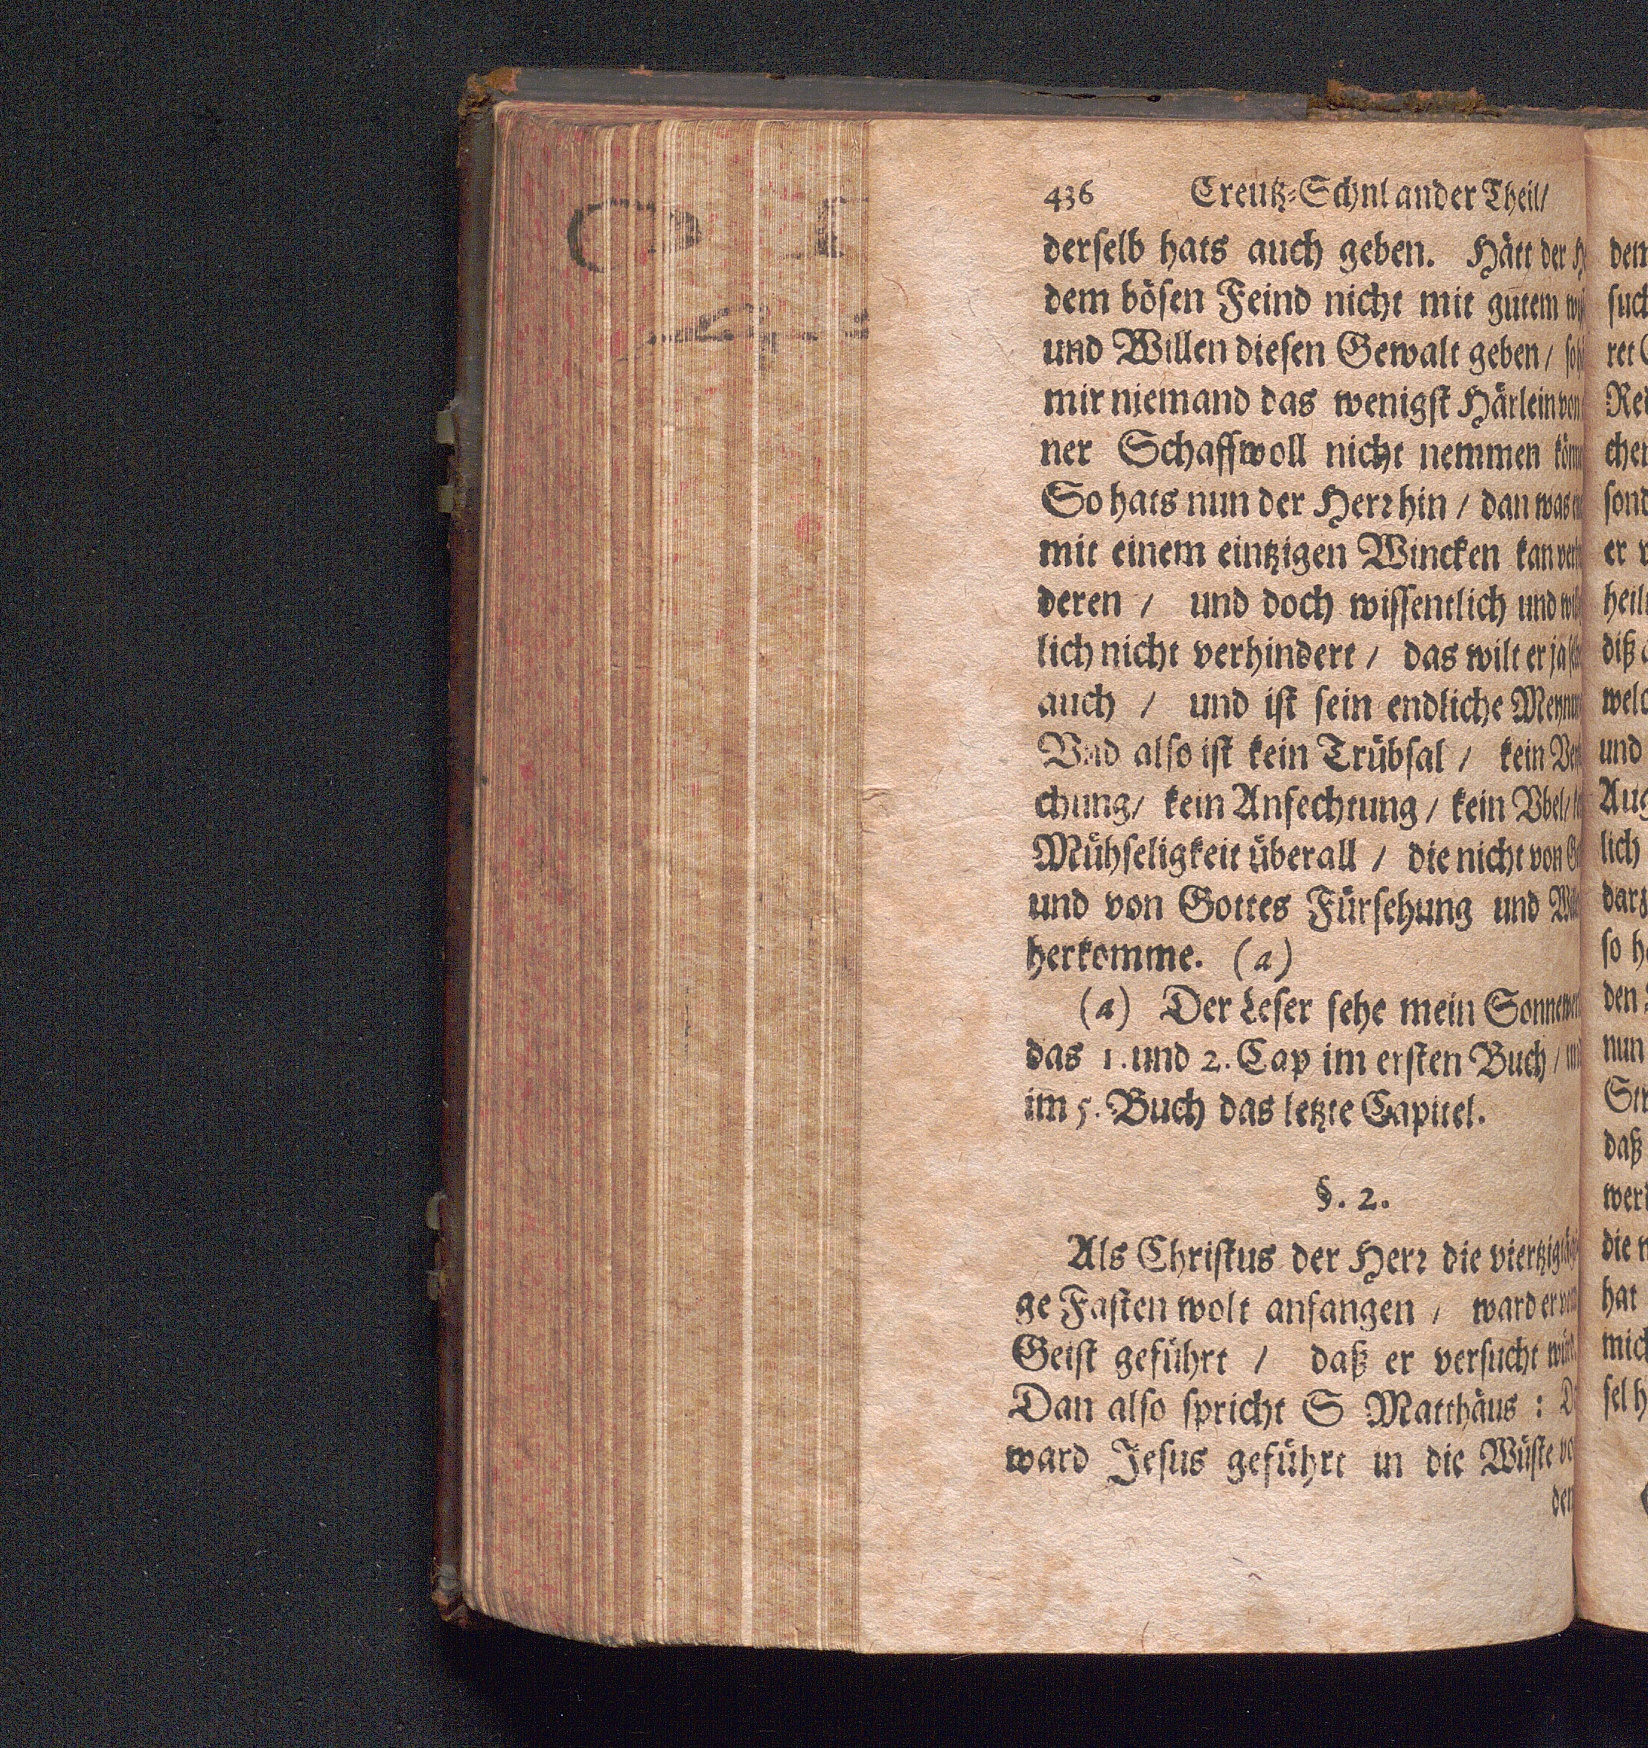 436 Creutz-Schul ander Theil/
derselb hats auch geben. Hätt der
dem bösen Feind nicht mit gutem
und Willen diesen Gewalt geben /
mir niemand das wenigst Härlein von
ner Schaffwoll nicht nemmen
So hats nun der Herr hin / dan was
mit einem eintzigen Wincken kan
deren / und doch wissentlich und
lich nicht verhindert / das wilt er ja
auch / und ist sein endliche
Vnd also ist kein Trübsal / kein
chung/ kein Anfechtung / kein Vbel/
Mühseligkeit überall / die nicht von
und von Gottes Fürsehung und
herkomme. (a)
(a) Der Leser sehe mein
das 1. und 2. Cap im ersten Buch /
im 5. Buch das letzte Capitel.
§. 2.
Als Christus der Herr die
ge Fasten wolt anfangen / ward er
Geist geführt / daß er versucht
Dan also spricht S Matthäus :
ward Jesus geführt in die Wüste
den
dem
such
ret
Re
chen
sond
er
heil
diß
welc
und
Aug
lich
dar
so h
den
nun
Str
daß
wer
die
hat
mich
sel h